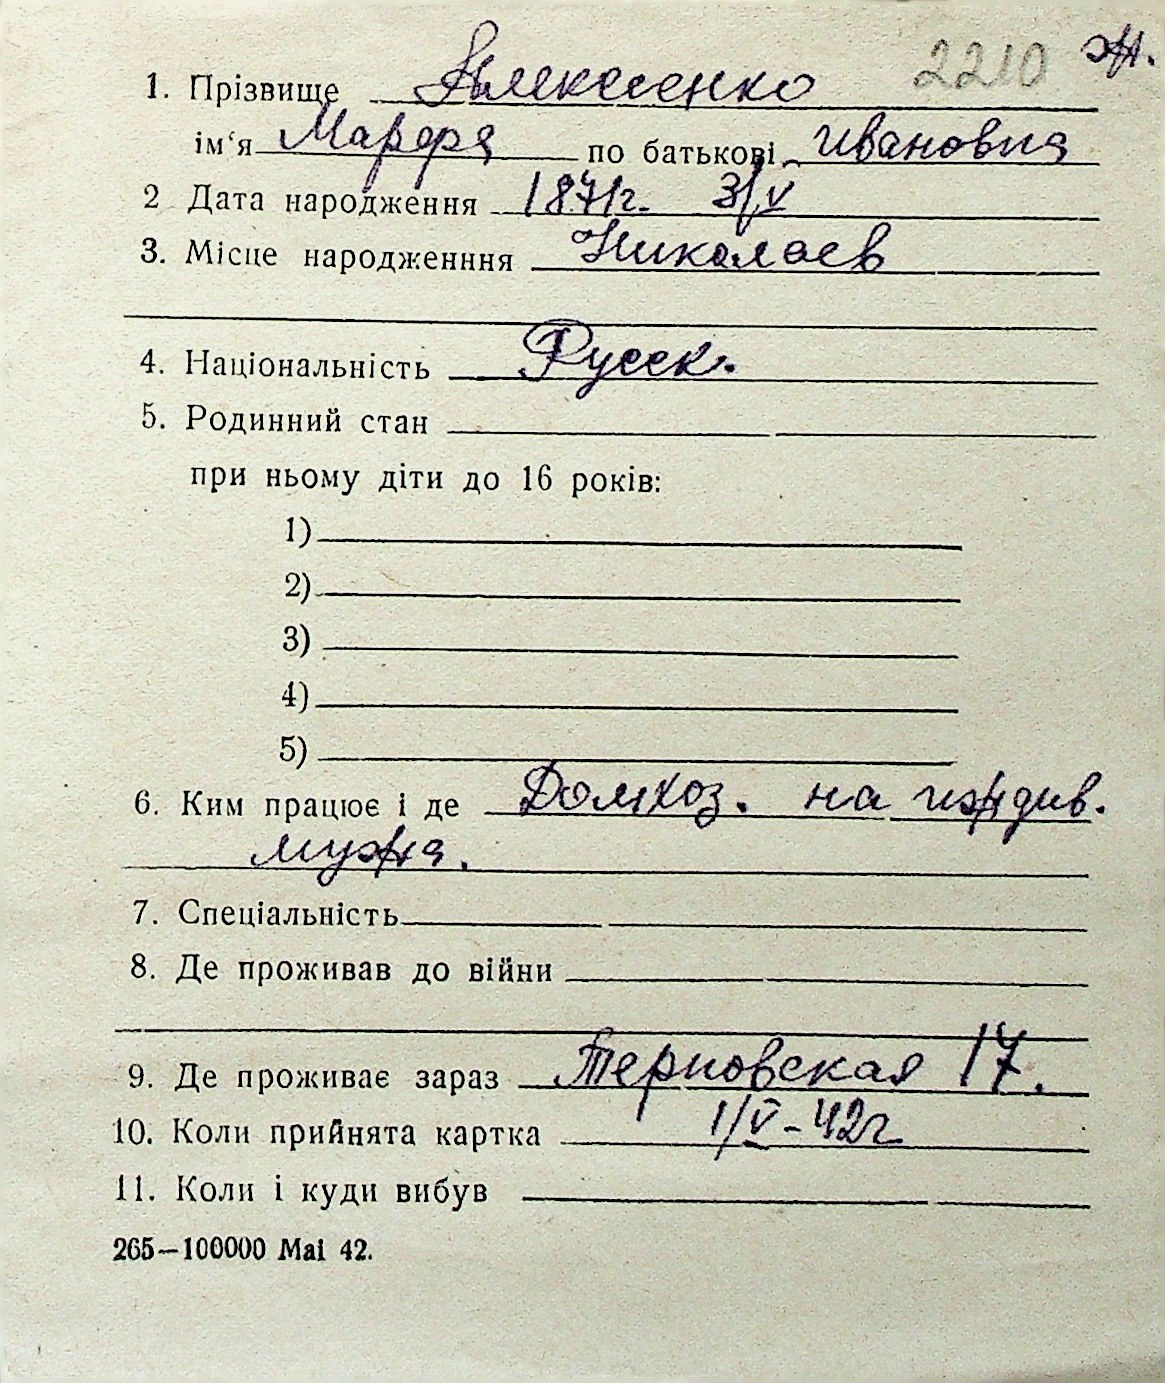 2210 Ж.
1. Прізвище Алексеенко
ім‘я Марфа по батькові Ивановна
2 Дата народження 1871г. 3/V
3. Місце народженння Николаев
4. Національність Русск.
5. Родинний стан
при ньому діти до 16 років:
1)
2)
3)
4)
5)
6. Ким працює і де Домхоз. на иждив.
мужа.
7. Спеціальність
8. Де проживав до війни
9. Де проживає зараз Терновская 17.
10. Коли прийнята картка 1/V-42г
11. Коли і куди вибув
265—100000 Mai 42.